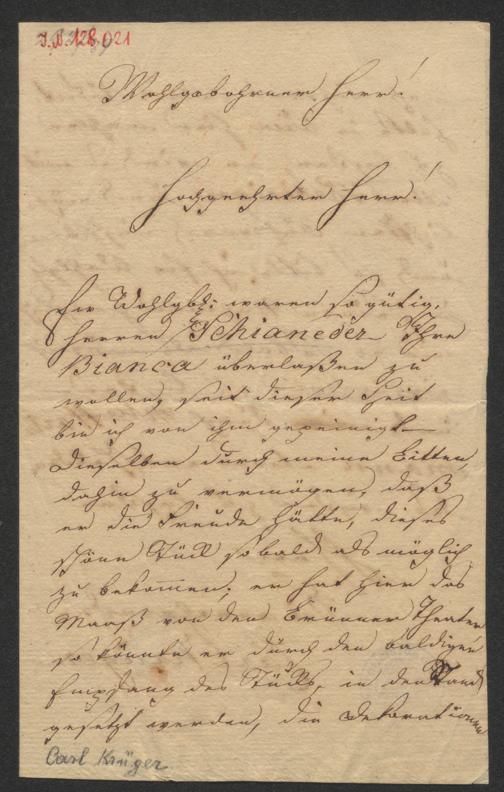 I.N. 128.021
Wohlgebohrner Herr!
Hochgeehrter Herr!
Ew Wohlgb: waren so gütig,
Herren Schikaneder Ihre
Bianca überlaßen zu
wollen, seit dieser Zeit
bin ich von ihm gepeinigt
Dieselben durch meine Bitten,
dahin zu vermögen, daß
er die Freude hätte, dieses
schöne Stück sobald als möglich
zu bekommen; er hat hier das
Maaß von den Brünner Theater
so könnte er durch den baldigen
Empfang des Stücks, in den Stand
gesetzt werden, die Dekorationen
Carl Krüger